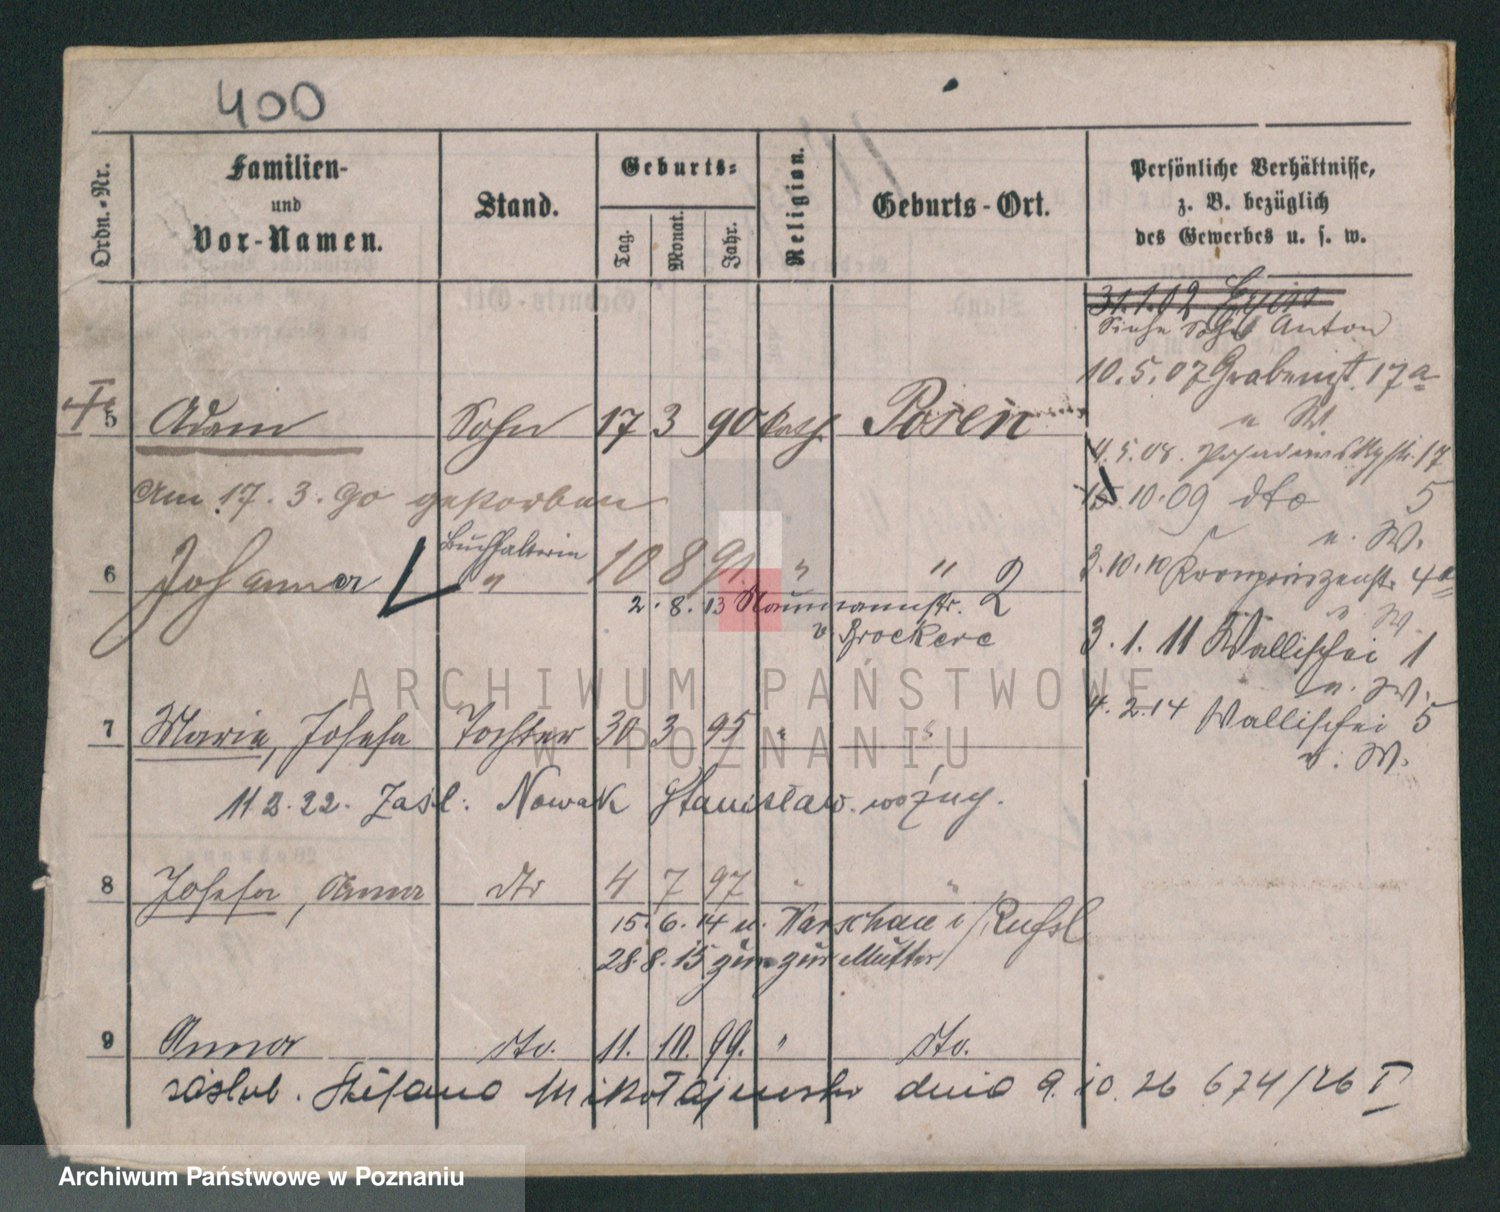 400
Ordn.-Nr.
Familien-
und
Vor-Namen.
Stand.
Geburts-
Tag.
Monat.
Jahr.
Religion.
Geburts-Ort.
Persönliche Verhältnisse,
z. B. bezüglich
des Gewerbes u. s. w.
31.1.02
Siehe Sohn Anton
10.5.07 Grabenst. 17a
u W
5 Adam Sohn 17 3 90 kath. Posen
4.5.08. 17
Am 17. 3. 90 gestorben
10.09 dto 5
u. W.
Buchhalterin
6 Johanna " 10 8 91 " "
3.10.10 Kronprinzenstr. 4a
u. W.
2. 8. 13 Naumannstr. 2
b Brockere
3. 1. 11 Wallischei 1
u. W.
7 Marie, Josefa Tochter 30 3 95 " "
4. 2. 14 Wallischei 5
b. W.
11 2. 22. Zasl. Nowak Stanisław. woźny.
8 Josefa, Anna dto 4 7 97 " "
15. 6. 14 n. Warschau i/Russl
28. 8. 15 zur Mutter
9 Anna dto. 11. 10. 99. " dto.
zaslub. Stefana Mikołajewski dnia 9. 10. 26 674/26 I
ARCHIWUM PAŃSTWOWE
W POZNANIU
Archiwum Państwowe w Poznaniu